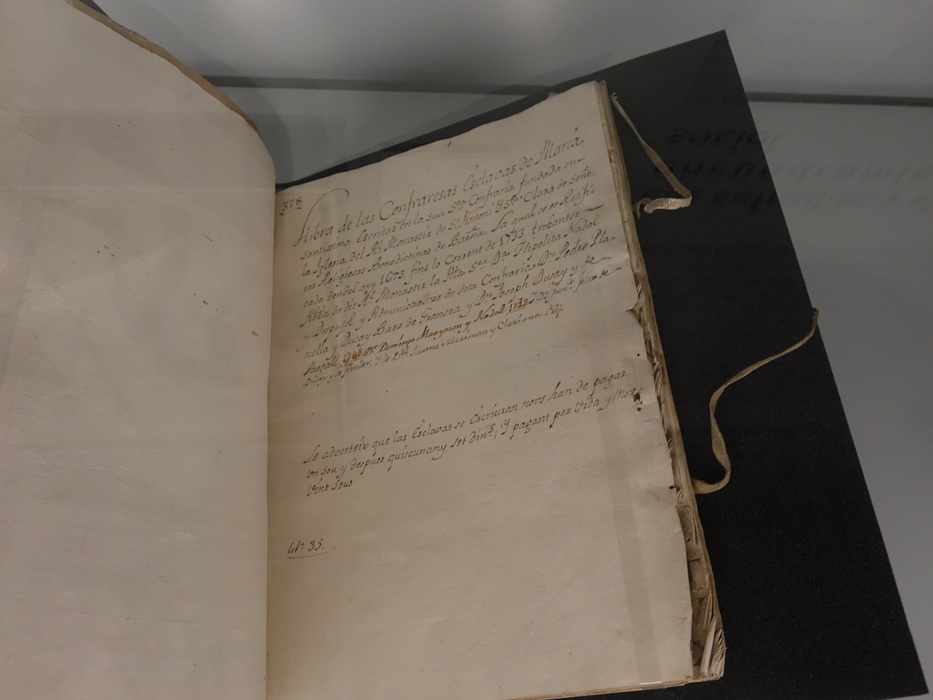 378
Llibra de las Confraresas Esclavas de Maria
santissima Escritas en la sua Sta. Confraria fundada en
la Iglesia del Rl. Monastir de St. Antoni y Sta. Clara de Seño-
ras Religiosas Benedictinas de Barña. La qual es es Reifi-
cada desdel any 1673. fins lo Corrent de 1733. trobantse
Abba. de dit Rl. Monastir la Mta. Sra. Da. Hipolita Nadal
y Despujol y Administradors de dita Confraria Dr. Pedro Pla-
nella y Dusay Baro de Granera, y Dn. Joseph Dusay y de
Domingo Marymon y Nadal 1739
y Clariana.
Se adverteix que las Esclavas se Escriuran nous han de pagar
Un sou y despues quiscun any set dins.; y pagant per Vida y Mort
Vint Sous
Est. 35.
social